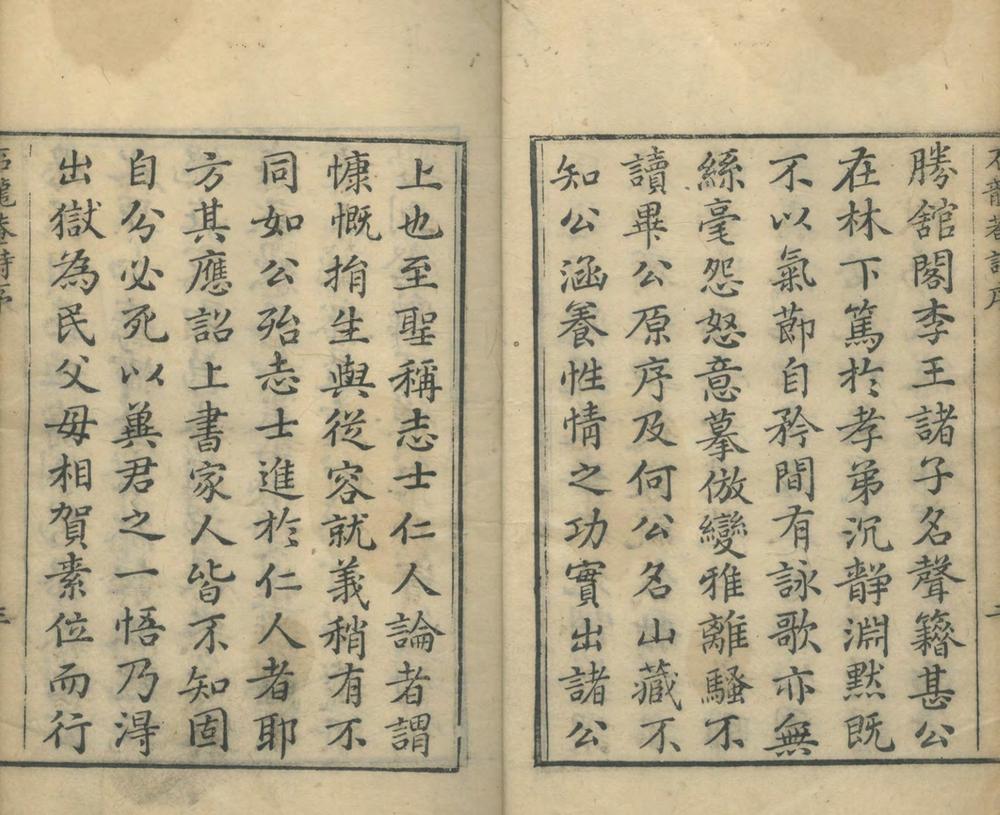 勝舘閣李王諸子名聲籍甚公
在林下篤於孝弟沉靜淵默既
不以氣節自矜間有詠歌亦無
絲毫怨怒意摹倣變雅離騷不
讀畢公原序及何公名山藏不
知公涵養性情之功實出諸公
上也至聖稱志士仁人論者謂
慷慨捐生與從容就義稍有不
同如公殆志士進於仁人者耶
方其應詔上書家人皆不知固
自分必死以冀君之一悟乃淂
出獄為民父母相賀素位而行
龍菴詩序